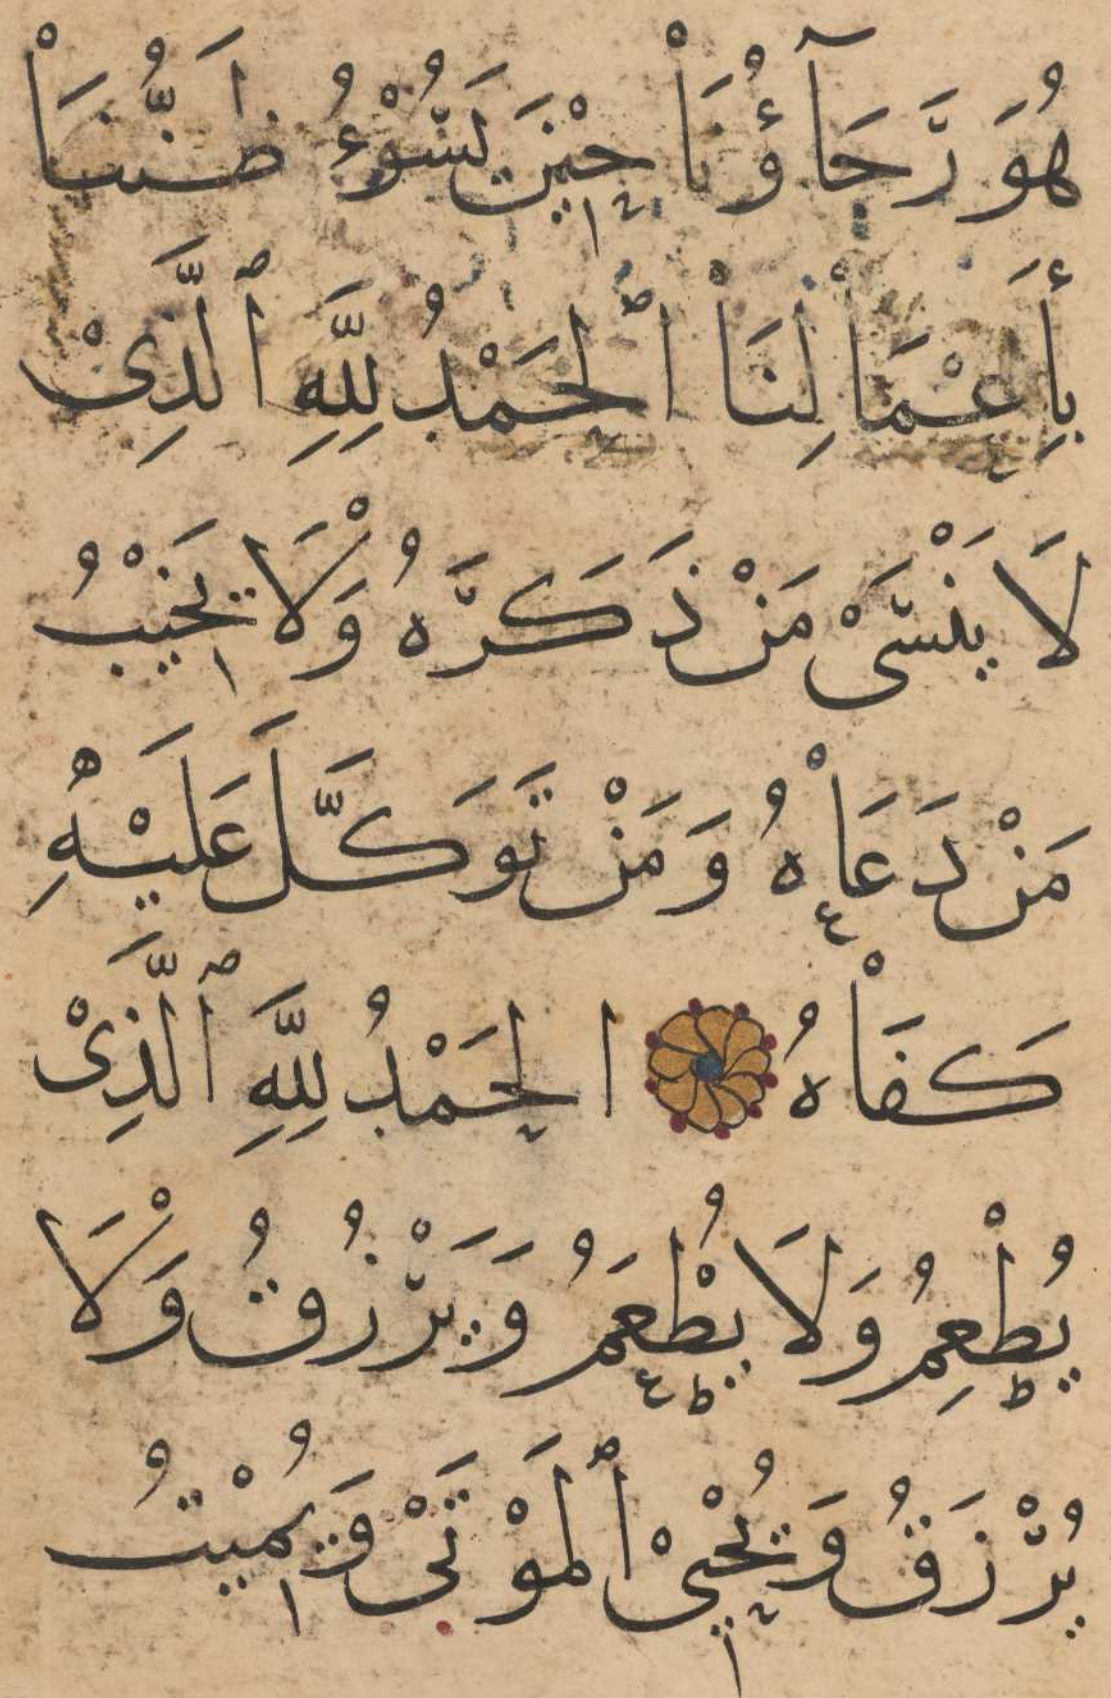 هُوَ رَّجَآؤُنَاْ حِيْنَ تَسُّوْءُ ظَنُّنَاْ
بِأَعْمَاْلِنَاْ ٱلْحَمْدُ لِلَّهِ ٱلَّذِىْ
لَا يَنْسَّىْ مَنْ ذَكَرَّهُ وَلَاْ يَخِيْبُ
مَنْ دَعَاْهُ وَمَنْ تَوَكَّلَ عَلَيْهِ
كَفَاْهُ الحَمْدُ لِلَّهِ ٱلَّذِىْ
يُطْعِمُ وَلَا يُطْعَمُ وَيَرْزُقُ وَلَاْ
يُرْزَقُ وَيُحْيِىْ ٱلمَوْتَىْ وَيُمِيْتُ